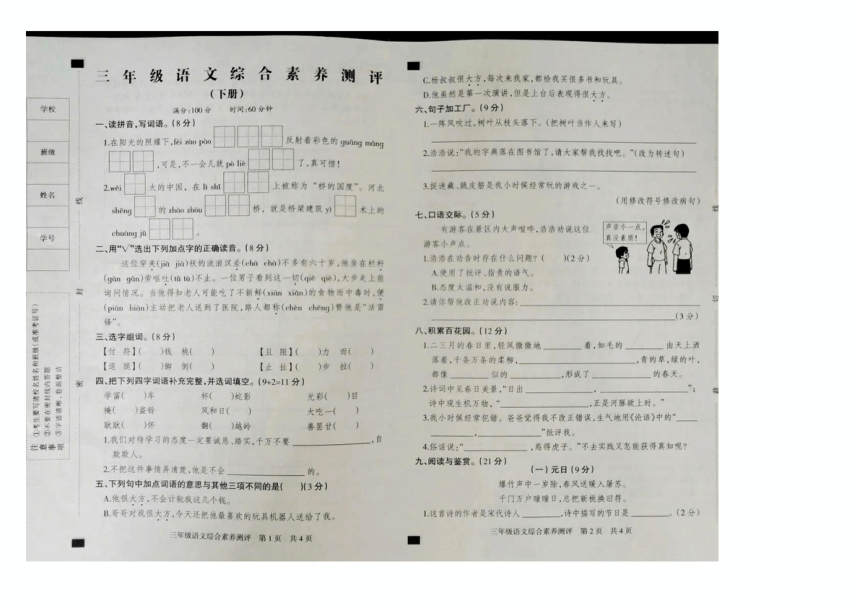 三年级语文综合素养测评
(下册)
满分:100分 时间:60分钟
学校
班级
姓名
学号
线
封
密
注意事项
①考生要写清校名姓名和班级(或准考证号)
②不要在密封线内答题
③字迹清晰,卷面整洁
一、读拼音,写词语。(8分)
1.在阳光的照耀下,féi zào pào 反射着彩色的 guāng máng
,可是,不一会儿就 pò liè 了,真可惜!
2.wěi 大的中国,在 lì shǐ 上被称为“桥的国度”。河北
shěng 的 zhào zhōu 桥,就是桥梁建筑 yì 术上的
chuàng jǔ 。
二、用“√”选出下列加点字的正确读音。(8分)
这位穿夹(jiā jiá)袄的流浪汉差(chā chà)不多有六十岁,他坐在栏杆
(gān gǎn)旁呕吐(tǔ tù)不止。一位男子看到这一切(qiē qiè),大步走上前
询问情况。当他得知老人可能吃了不新鲜(xiān xiǎn)的食物而中毒时,便
(pián biàn)主动把老人送到了医院,路人都称(chèn chēng)赞他是“活雷
锋”。
三、选字组词。(8分)
【付 符】( )钱 桃( ) 【且 阻】( )力 而( )
( )脚 倒( ) 【止 扯】( )步 拉( )
四、把下列四字词语补充完整,并选词填空。(9+2=11分)
学富( )车 杯( )蛇影 光彩( )目
掩( )盗铃 风和日( ) 大吃一( )
耿耿( )怀 翻( )越岭 善罢甘( )
1.我们对待学习的态度一定要诚恳、踏实,千万不要 ,自
欺欺人。
2.不把这件事情弄清楚,他是不会 的。
五、下列句中加点词语的意思与其他三项不同的是( )(3分)
A.他很大方,不会计较我这几个钱。
B.哥哥对我很大方,今天还把他最喜欢的玩具机器人送给了我。
三年级语文综合素养测评 第1页 共4页
C.杨叔叔很大方,每次来我家,都给我买很多书和玩具。
D.他虽然是第一次演讲,但是上台后表现得很大方。
六、句子加工厂。(9分)
1.一阵风吹过,树叶从枝头落下。(把树叶当作人来写)
2.浩浩说:“我的字典落在图书馆了,请大家帮我找找吧。”(改为转述句)
3.捉迷藏、跳皮筋是我小时候经常玩的游戏之一。
(用修改符号修改病句)
七、口语交际。(5分)
有游客在景区内大声喧哗,浩浩劝说这位
游客小声点。
声音小一点,
真没素质!
1.浩浩在劝告时存在什么问题?( )(2分)
A.使用了批评、指责的语气。
B.态度太温和,没有说服力。
2.请你帮他改正劝说内容:
(3分)
八、积累百花园。(12分)
1.二三月的春日里,轻风微微地 着,如毛的 由天上洒
落着,千条万条的柔柳, ,青的草,绿的叶,
都像 似的 ,形成了 的春天。
2.诗词中见春日美景,“日出 , ”;
诗中现生机万物,“ ,正是河豚欲上时。”
3.我小时候经常犯错。爸爸觉得我不改正错误,生气地用《论语》中的“
, ”批评我。
4.俗话说:“ ,焉得虎子。”不去实践又怎能获得真知呢?
九、阅读与鉴赏。(21分)
(一)元日(9分)
爆竹声中一岁除,春风送暖入屠苏。
千门万户曈曈日,总把新桃换旧符。
1.这首诗的作者是宋代诗人 ,诗中描写的节日是 。(2分)
三年级语文综合素养测评 第2页 共4页